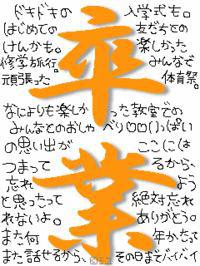 卒業
ドキドキの 入学式も。
はじめての 友だちとの
けんかも。 楽しかった
修学旅行。 みんなで
頑張った 体育祭。
なによりも楽しか った教室での
みんなとのおしゃ べり♡♡いっぱい
の思い出が ここには
つまって るから、
忘れ よう
と思ったって 絶対忘れ
れないよ。 ありがとう。
また何 年かたって
また話せるから、その日までバイバイ